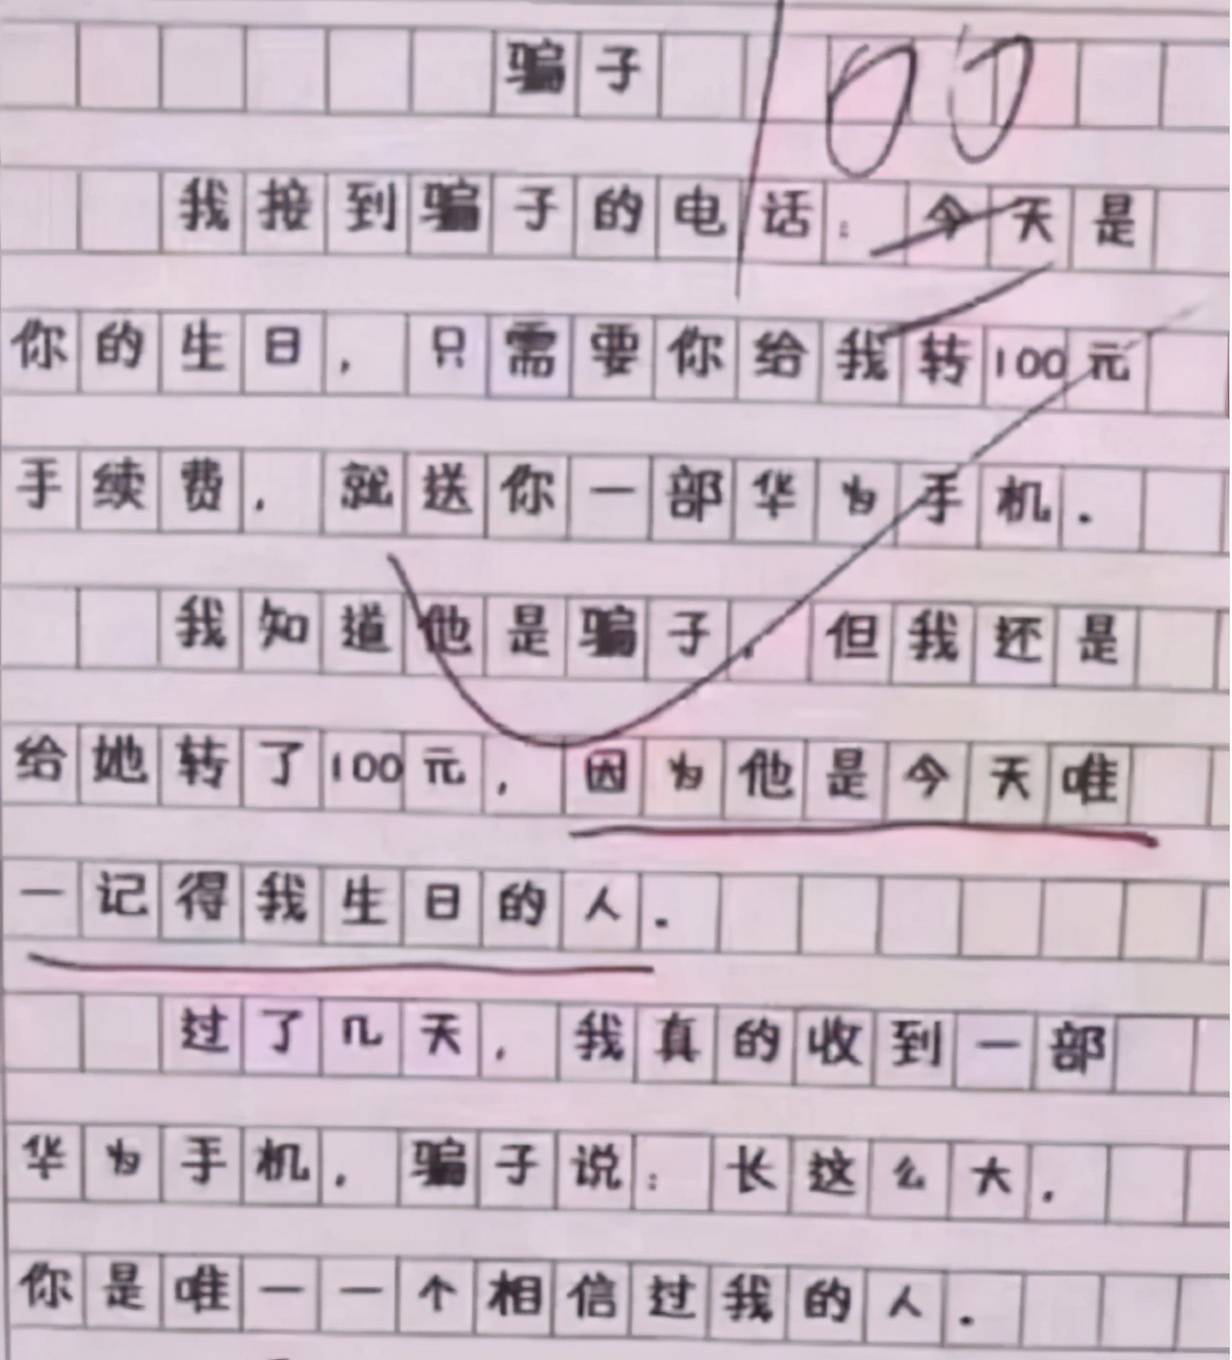 骗子 100
我接到骗子的电话：今天是
你的生日，只需要你给我转100元
手续费，就送你一部华为手机．
我知道他是骗子，但我还是
给她转了100元，因为他是今天唯
一记得我生日的人．
过了几天，我真的收到一部
华为手机，骗子说：长这么大．
你是唯一一个相信过我的人．